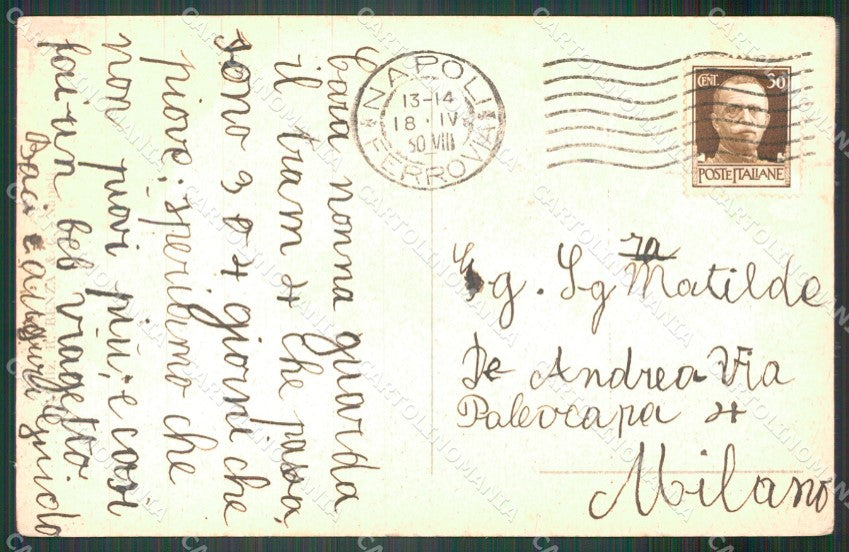 Cara nonna guarda
il tram 4 che passa,
sono 3 o 4 giorni che
piove; speriamo che
non piovi più; e così
fai un bel viaggetto
Baci e auguri Guido
NAPOLI
13-14
18 · IV
30 VIII
FERROVIA
CENT. 30
POSTE ITALIANE
Eg. Sg.ra Matilde
De Andrea Via
Paleocapa 4
Milano
CARTOLINOMANIA